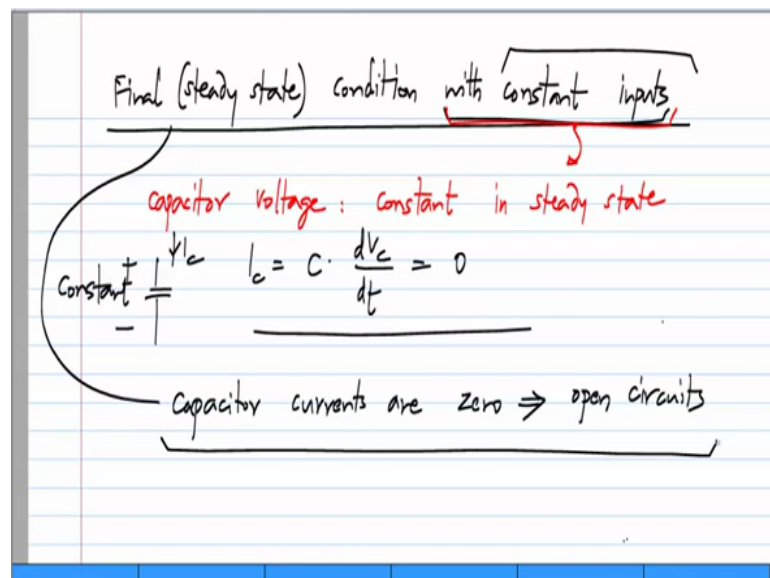 Final (steady state) condition with constant inputs
capacitor voltage : constant in steady state
constant + − I_c I_c = C · dV_c/dt = 0
Capacitor currents are zero ⇒ open circuits